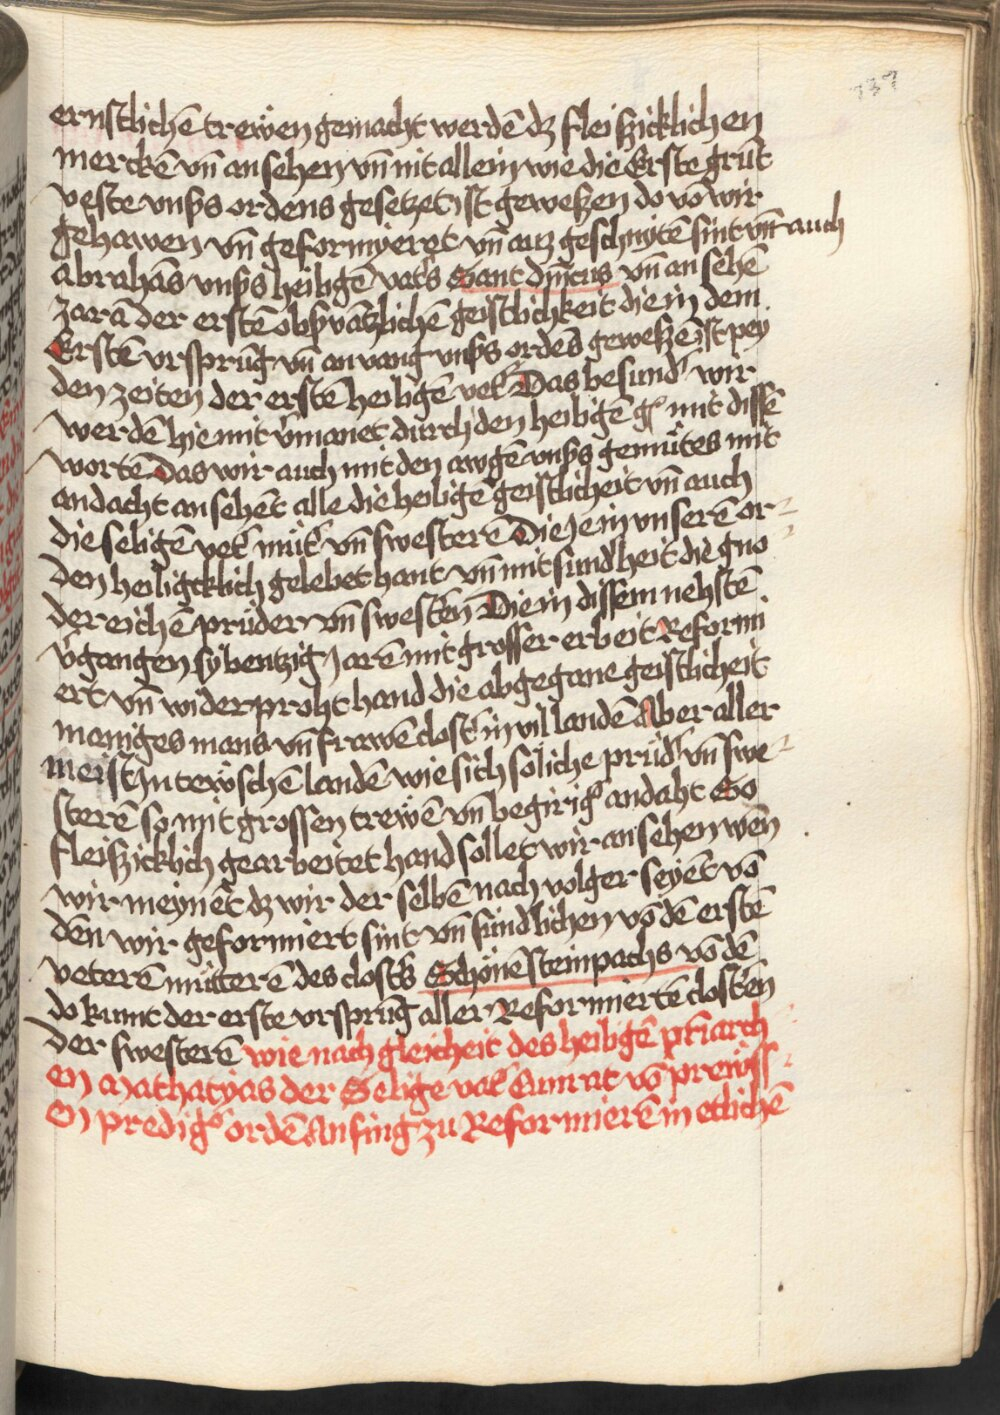 137
ernstlichē trewen gemacht werdē dz fleiszicklichen
merckē vn̄ an sehen vn̄ nit allein wie die Erste grūt
veste vnsʒs ordens gesetzet ist geweszen do vō wir
gehawen vn̄ geformyeret vn̄ auz geschnytē sint vn̄ auch
abrahās vnsʒs heiligē vatʼs Sant dn̄icus vn̄ an sehē
zarā der erstē obsʼvātzlichē geistlichkeit die in dem
Erstē vrsprūg vn̄ anvang vnsʒs ordēs gewesze ist pey
den zeiten der erstē heiligē vetʼ Das besundʼ wir
werdē hie mit v̓manet durch den heiligē gʼ mit dissē
wortē Das wir auch mit den awgē vnsʒs gemütes mit
andacht an sehēt alle die heiligē geistlicheit vn̄ auch
die seligē vetʼ mütʼ vn̄ swesterē Die ie in vnserē or
den heiligcklich gelebet hant vn̄ mit sundheit die gno
dereichē prüder vn̄ swestʼen Die in dissem nehstē
v̓gangen sybentzig Jarē mit grosser erbeit Reformi
ert vn̄ wider proht hand die abgegane geistlicheit
maniges mans vn̄ frawē clostʼ in vil landē Aber aller
meist In tewschē landē wie sich soliche prüdʼ vn̄ swe
sterē so mit grossen trewē vn̄ begirigʼ andaht So
fleiszicklich gearbeitet hand sollet wir an sehen wēn
wir meynēt dz wir der selbē nach volger seyēt vō
den wir geformiert sint vn̄ sundlichen vō dē erstē
veterē mütterē des clostʼs Schönēsteinpachs vō dē
do kumt der erste vrsprūg aller Reformiertē clostʼen
der swesterē wie nach gleicheit des heiligē pat͛iarch
en Mathatyas der Selige vatʼ Cunrat vō prewss
en predigʼ ordē Anfing zu Reformierē in etlichē